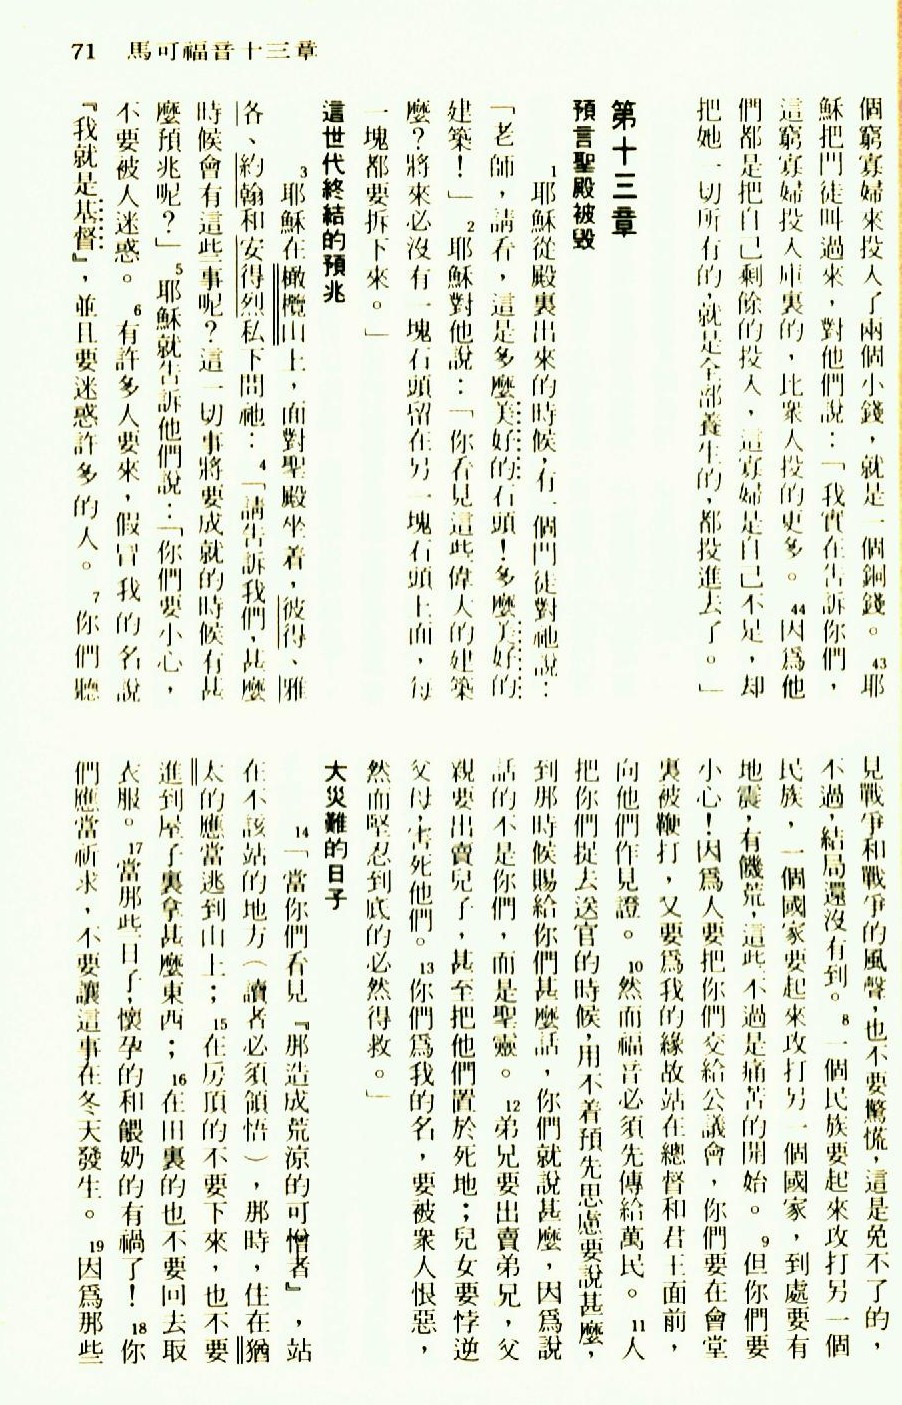 71 馬可福音十三章
個窮寡婦來投入了兩個小錢，就是一個銅錢。43耶
穌把門徒叫過來，對他們說：「我實在告訴你們，
這窮寡婦投入庫裏的，比衆人投的更多。44因爲他
們都是把自己剩餘的投入，這寡婦是自己不足，却
把她一切所有的，就是全部養生的，都投進去了。」
第十三章
預言聖殿被毀
1耶穌從殿裏出來的時候，有一個門徒對祂說：
「老師，請看，這是多麼美好的石頭！多麼美好的
建築！」2耶穌對他說：「你看見這些偉大的建築
麼？將來必沒有一塊石頭留在另一塊石頭上面，每
一塊都要拆下來。」
這世代終結的預兆
3耶穌在橄欖山上，面對聖殿坐着，彼得、雅
各、約翰和安得烈私下問祂：4「請告訴我們，甚麼
時候會有這些事呢？這一切事將要成就的時候有甚
麼預兆呢？」5耶穌就告訴他們說：「你們要小心，
不要被人迷惑。6有許多人要來，假冒我的名說
『我就是基督』，並且要迷惑許多的人。7你們聽
見戰爭和戰爭的風聲，也不要驚慌，這是免不了的，
不過，結局還沒有到。8一個民族要起來攻打另一個
民族，一個國家要起來攻打另一個國家，到處要有
地震，有饑荒，這些不過是痛苦的開始。9但你們要
小心！因爲人要把你們交給公議會，你們要在會堂
裏被鞭打，又要爲我的緣故站在總督和君王面前，
向他們作見證。10然而福音必須先傳給萬民。11人
把你們捉去送官的時候，用不着預先思慮要說甚麼，
到那時候賜給你們甚麼話，你們就說甚麼，因爲說
話的不是你們，而是聖靈。12弟兄要出賣弟兄，父
親要出賣兒子，甚至把他們置於死地；兒女要悖逆
父母，害死他們。13你們爲我的名，要被衆人恨惡，
然而堅忍到底的必然得救。」
大災難的日子
14「當你們看見『那造成荒涼的可憎者』，站
在不該站的地方（讀者必須領悟），那時，住在猶
太的應當逃到山上；15在房頂的不要下來，也不要
進到屋子裏拿甚麼東西；16在田裏的也不要回去取
衣服。17當那些日子，懷孕的和餵奶的有禍了！18你
們應當祈求，不要讓這事在冬天發生。19因爲那些